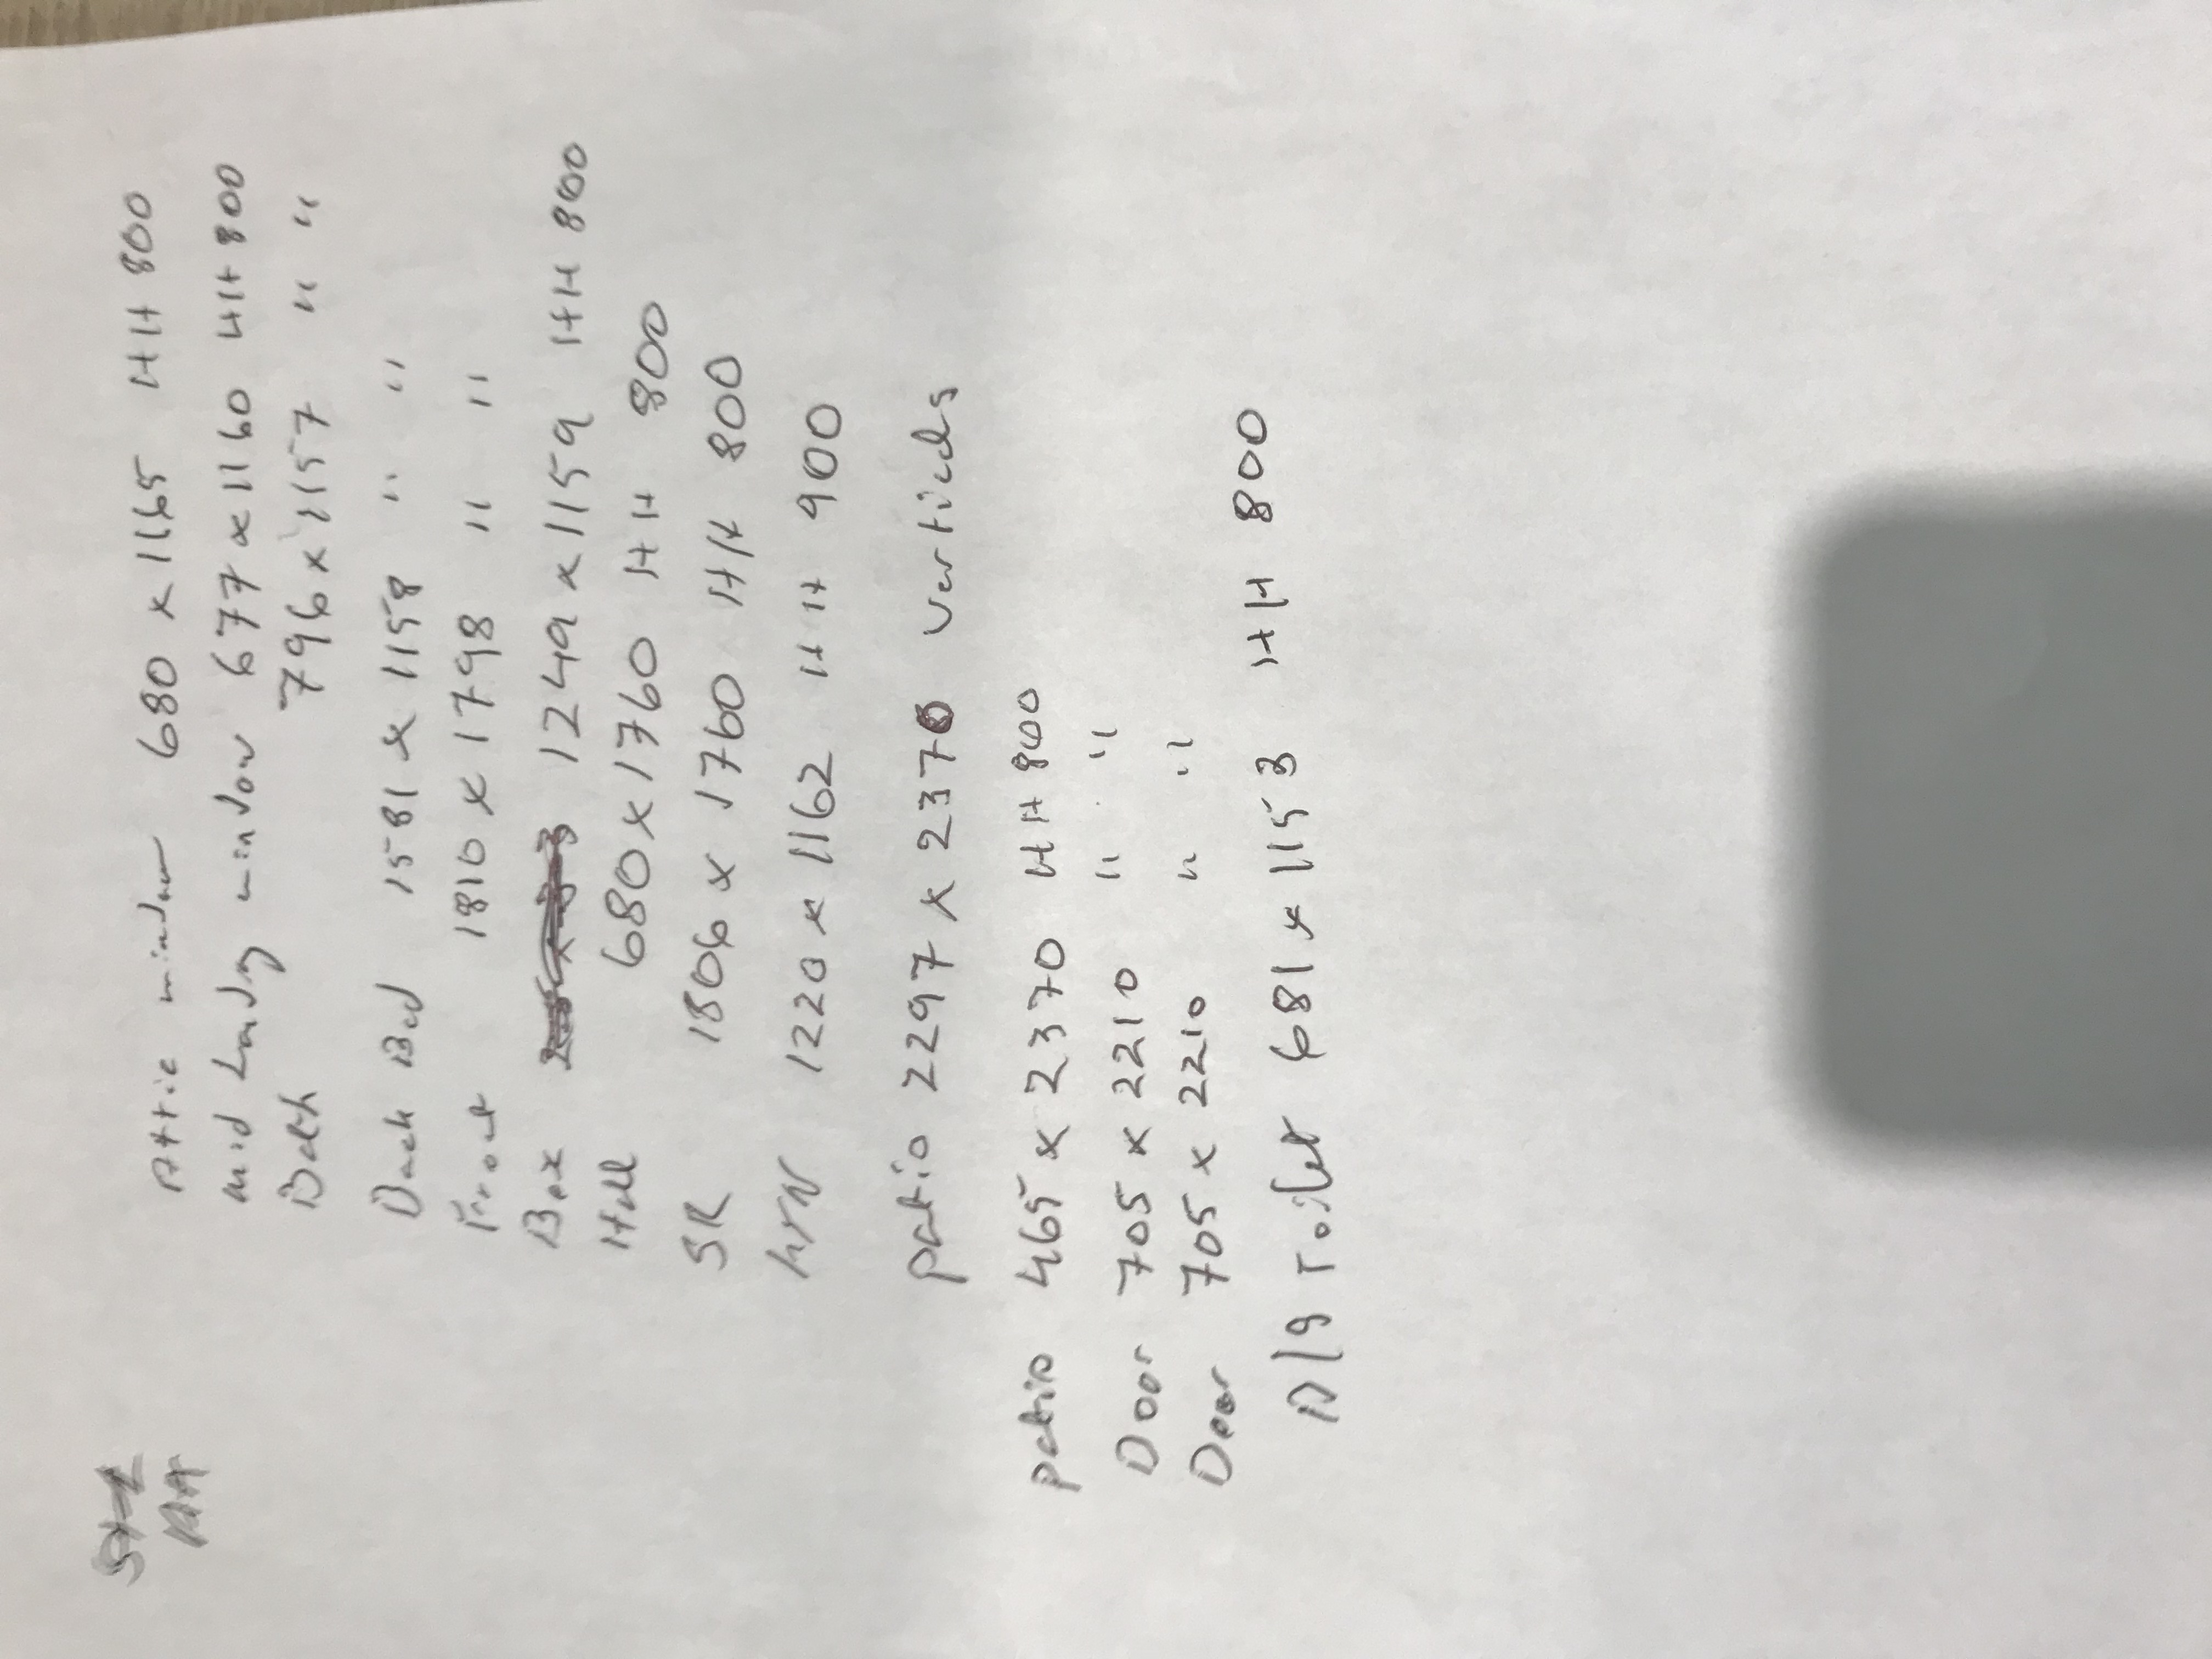 Attic window 680 x 1165 HH 800
mid Landing window 677 x 1160 HH 800
Bath 796 x 1157 " "
Back Bed 1581 x 1158 " "
Front 1810 x 1798 " "
Box 1249 x 1159 HH 800
Hall 680 x 1760 HH 800
SR 1806 x 1760 HH 800
1220 x 1162 HH 900
patio 2297 x 2370 verticals
patio 465 x 2370 HH 800
Door 705 x 2210 " "
Door 705 x 2210 " "
D/S Toilet 681 x 1153 HH 800